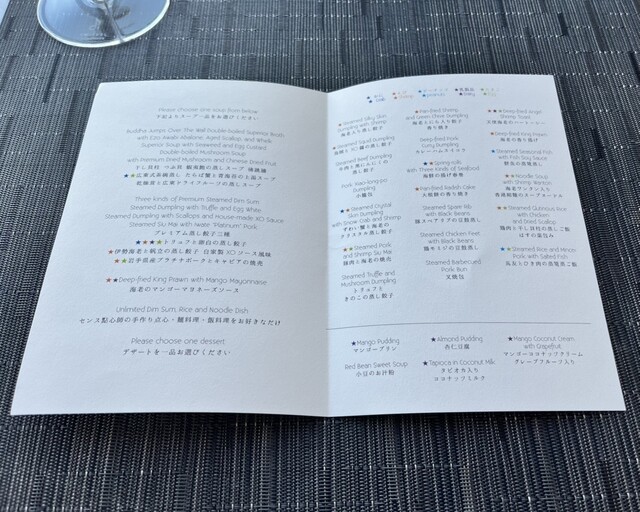 Please choose one soup from below
下記よりスープ一品をお選びください
Buddha Jumps Over The Wall Double-boiled Superior Broth
with Ezo Awabi Abalone, Aged Scallop and Whelk
Superior Soup with Seaweed and Egg Custard
Double-boiled Mushroom Soup
with Premium Dried Mushroom and Chinese Dried Fruit
Three Kinds of Premium Steamed Dim Sum
Steamed Dumpling with Truffle and Egg White
Steamed Dumpling with Scallops and House-made XO Sauce
Steamed Siu Mai with Iwate "Platinum" Pork
プレミアム蒸し餃子三種
★★★★トリュフと卵白の蒸し餃子
★伊勢海老と帆立の蒸し餃子 自家製XOソース風味
★★岩手県産プラチナポークとキャビアの焼売
★★Deep-fried King Prawn with Mango Mayonnaise
海老のマンゴーマヨネーズソース
Unlimited Dim Sum, Rice and Noodle Dish
センス點心師の手作り点心・麺料理・飯料理をお好きなだけ
Please choose one dessert
デザートを一品お選びください
★Steamed Silky Skin
Dumpling with Shrimp
海老入り蒸し餃子
★Steamed Squid Dumpling
Steamed Beef Dumpling
Pork Xiao-long-po
Dumpling
小籠包
★★Steamed Crystal
Skin Dumpling
with Snow Crab and Shrimp
ずわい蟹と海老の
クリスタル蒸し餃子
★★Steamed Pork
and Shrimp Siu Mai
豚肉と海老の焼売
Steamed Truffle and
Mushroom Dumpling
トリュフと
きのこの蒸し餃子
★Pan-fried Shrimp
and Green chive Dumpling
海老とにら入り
香り焼き
Deep-fried Pork
Curry Dumpling
カレーハムスイコウ
★★Spring-rolls
with Three Kinds of Seafood
海鮮の揚げ春巻
★Pan-fried Radish Cake
大根餅の香り焼き
Steamed Spare Rib
with Black Beans
豚スペアリブの豆鼓蒸し
Steamed Chicken Feet
with Black Beans
鶏モミジの豆鼓蒸し
Steamed Barbecued
Pork Bun
叉焼包
★★Deep-fried King Prawn
海老の春巻き
★Steamed Seasonal Fish
with Fish Soy Sauce
鮮魚の長葱蒸し
★★Noodle Soup
with Shrimp Wanton
海老ワンタン入り
★★Steamed Glutinous Rice
with Chicken
and Dried Scallop
鶏肉と干し貝柱の蒸しご飯
はすの葉包み
★★Steamed Rice and Minced
Pork with Salted Fish
★Mango Pudding
マンゴープリン
★Almond Pudding
杏仁豆腐
★Mango Coconut Cream
with Grapefruit
マンゴーココナッツクリーム
グレープフルーツ入り
Red Bean Sweet Soup
小豆のお汁粉
★Tapioca in Coconut Milk
タピオカ入り
ココナッツミルク